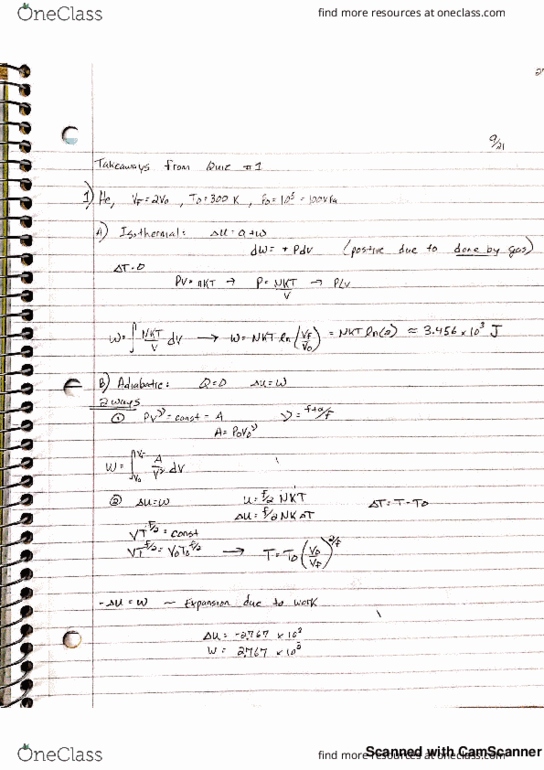 OneClass
find more resources at oneclass.com
9/21
Takeaways from Quiz #1
1) He, VF=2V0, T0=300 K, P0=10⁵=100kPa
A) Isothermal: Δu=Q+W
dW= + PdV (postive due to done by gas)
ΔT=0
PV=NKT → P= NKT/V → PdV
W=∫ NKT/V dV → W=NKT ln(VF/V0) = NKT ln(2) ≈ 3.456 x 10³ J
B) Adiabatic: Q=0 Δu=W
2 ways
① PVᵞ=const=A γ= f+2/f
A=P0V0ᵞ
W=∫ A/Vᵞ dV
② Δu=W U=f/2 NKT ΔT=T-T0
Δu=f/2 NKΔT
VT^f/2=const
VT^f/2=V0T0^f/2 → T=T0(V0/VF)^2/f
-Δu=W ~ Expansion due to work
Δu=-2.767 x 10³
W= 2.767 x 10³
OneClass
find more resources at oneclass.com
Scanned with CamScanner